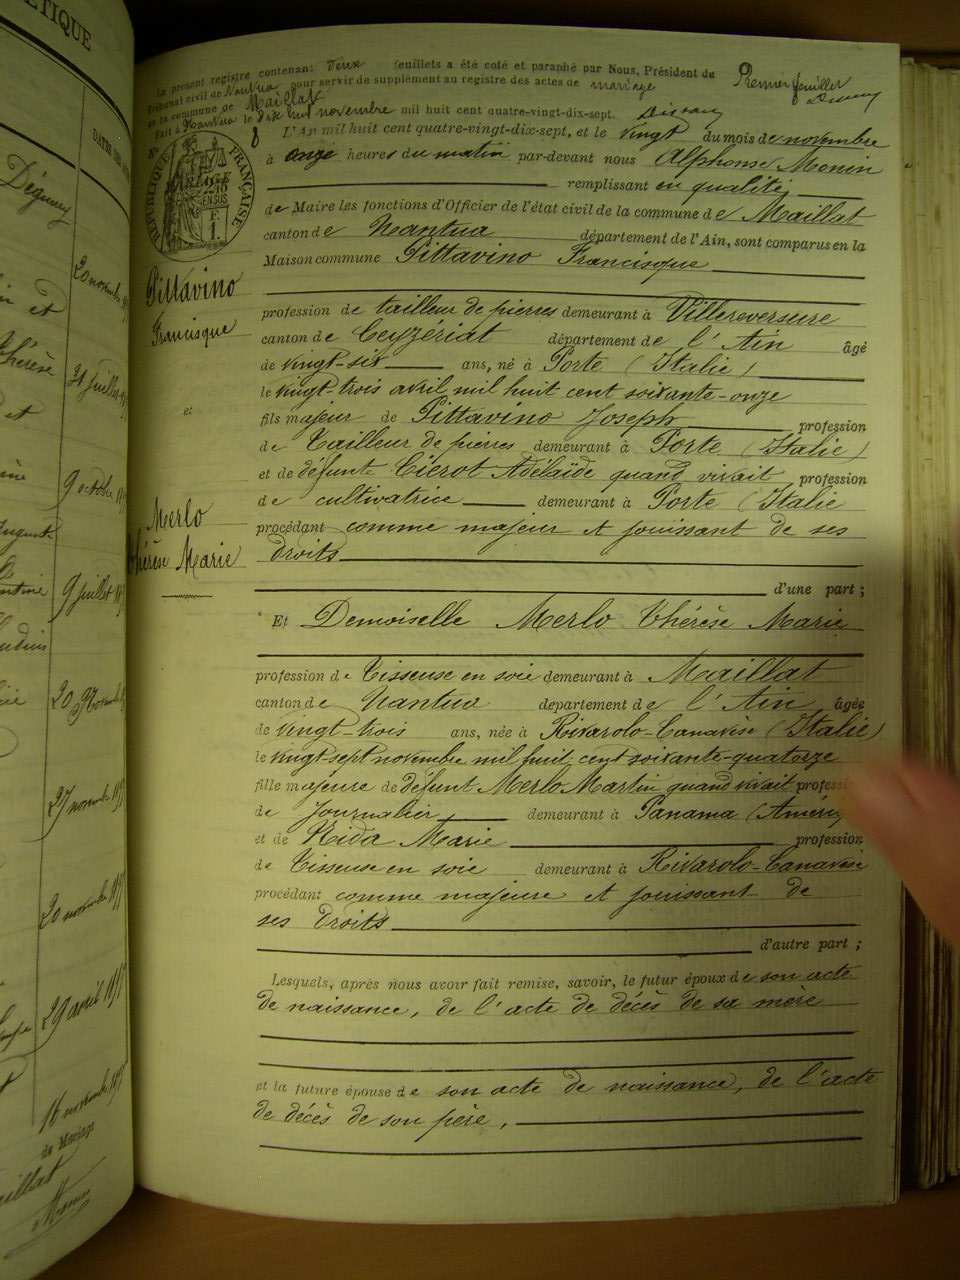 ÉTIQUE
Le présent registre contenant Deux feuillets a été coté et paraphé par Nous, Président du
Tribunal civil de Nantua pour servir de supplément au registre des actes de mariage
de la commune de Maillat
Premier feuillet
Fait à Nantua le dix huit novembre mil huit cent quatre-vingt-dix-sept.
8
L'An mil huit cent quatre-vingt-dix-sept, et le vingt du mois de novembre
à onze heures du matin par-devant nous Alphonse Monin
remplissant en qualité
de Maire les fonctions d'Officier de l'état civil de la commune de Maillat
canton de Nantua département de l'Ain, sont comparus en la
Maison commune Pittavino Francisque
RÉPUBLIQUE FRANÇAISE
Pittavino
Francisque
et
Merlo
Thérèse Marie
profession de tailleur de pierres demeurant à Villereversure
canton de Ceyzériat département de l'Ain âgé
de vingt-six ans, né à Porte (Italie)
le vingt-trois avril mil huit cent soixante-onze
fils majeur de Pittavino Joseph profession
de Tailleur de pierres demeurant à Porte (Italie)
et de défunte Cierot Adélaïde quand vivait profession
de cultivatrice demeurant à Porte (Italie
procédant comme majeur et jouissant de ses
droits
d'une part ;
Et Demoiselle Merlo Thérèse Marie
profession de Tisseuse en soie demeurant à Maillat
canton de Nantua departement de l'Ain âgée
de vingt-trois ans, née à Rivarolo-Canavèse (Italie)
le vingt-sept novembre mil huit cent soixante-quatorze
fille majeure de défunt Merlo Martin quand vivait profess
de Journalier demeurant à Panama (Améri
et de Rida Marie profession
de Tisseuse en soie demeurant à Rivarolo-Canavèse
procédant comme majeure et jouissant de
ses droits
d'autre part ;
Lesquels, après nous avoir fait remise, savoir, le futur époux de son acte
de naissance, de l'acte de décès de sa mère
et la future épouse de son acte de naissance, de l'acte
de décès de son père,
DATES DE
20 novembre
et
Thérèse
31 juillet
et
9 octobre
9 juillet
20 Novembre
27 novembre
20 novembre
29 avril
16 novembre
du Mariage
Maillat
Monin